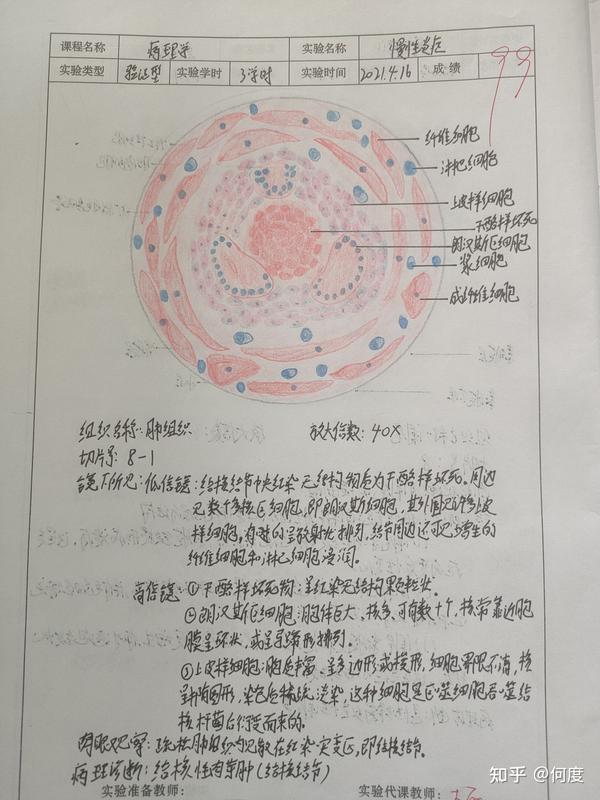 课程名称 病理学 实验名称 慢性炎症
实验类型 验证型 实验学时 3学时 实验时间 2021.4.16 成绩 99
纤维细胞
淋巴细胞
上皮样细胞
干酪样坏死
朗汉斯巨细胞
浆细胞
成纤维细胞
组织名称:肺组织 放大倍数:40X
切片号:8-1
镜下所见:低倍镜:结核结节中央红染无结构物质为干酪样坏死。周边
见数个多核巨细胞,即朗汉斯细胞,其外围见许多上皮
样细胞,有时呈放射状排列,结节周边还可见增生的
纤维细胞和淋巴细胞浸润。
高倍镜 ①干酪样坏死物:呈红染无结构颗粒状。
②朗汉斯巨细胞:胞体巨大、核多,可有数十个,核常靠近胞
膜呈环状,或呈马蹄形排列。
③上皮样细胞:胞质丰富、呈多边形或梭形,细胞界限不清,核
呈椭圆形,染色质稀疏淡染,这种细胞是巨噬细胞吞噬结
核杆菌后演变而来的。
肉眼观察:疏松肺组织内见散在红染实变区,即结核结节。
病理诊断:结核性肉芽肿(结核结节)
实验准备教师: 实验代课教师:
知乎 @何度